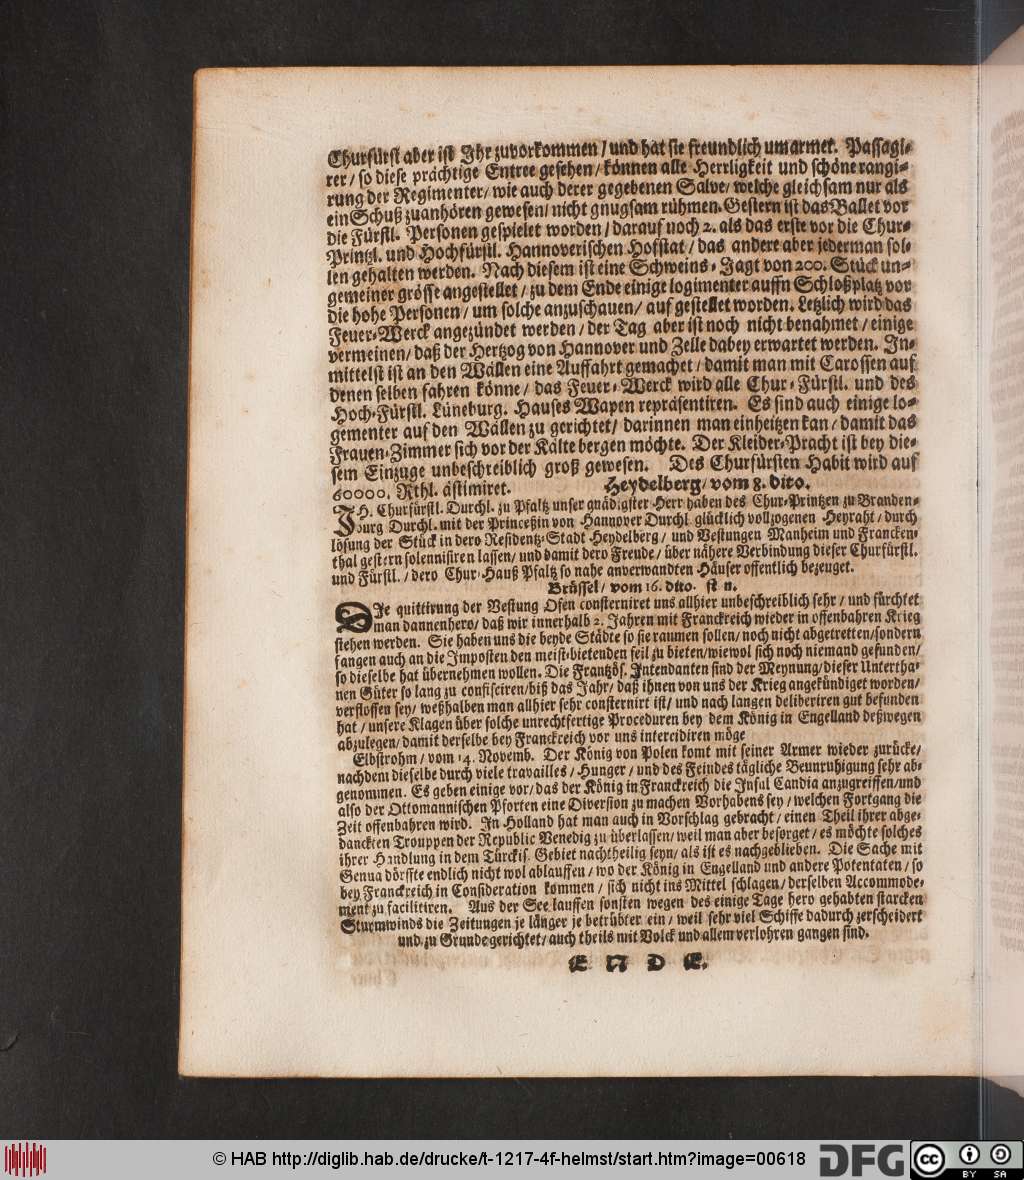 Churfürst aber ist Ihr zuvorkommen / und hat sie freundlich umarmet. Passagi-
rer / so diese prächtige Entree gesehen / können alle Herrligkeit und schöne rangi-
rung der Regimenter / wie auch derer gegebenen Salve / welche gleichsam nur als
ein Schuß zuanhören gewesen / nicht gnugsam rühmen. Gestern ist das Ballet vor
die Fürstl. Personen gespielet worden / darauf noch 2. als das erste vor die Chur-
Printzl. und Hochfürstl. Hannoverischen Hofstat / das andere aber jederman sol-
len gehalten werden. Nach diesem ist eine Schweins-Jagt von 200. Stück un-
gemeiner grösse angestellet / zu dem Ende einige logimenter auffn Schloßplatz vor
die hohe Personen / um solche anzuschauen / auf gestellet worden. Letzlich wird das
Feuer-Werck angezündet werden / der Tag aber ist noch nicht benahmet / einige
vermeinen / daß der Hertzog von Hannover und Zelle dabey erwartet werden. In-
mittelst ist an den Wällen eine Auffahrt gemachet / damit man mit Carossen auf
denen selben fahren könne / das Feuer-Werck wird alle Chur-Fürstl. und des
Hoch-Fürstl. Lüneburg. Hauses Wapen repräsentiren. Es sind auch einige lo-
gementer auf den Wällen zu gerichtet / darinnen man einheitzen kan / damit das
Frauen-Zimmer sich vor der Kälte bergen möchte. Der Kleider-Pracht ist bey die-
sem Einzuge unbeschreiblich groß gewesen. Des Churfürsten Habit wird auf
60000. Rthl. ästimiret. Heydelberg / vom 8. dito.
IH. Churfürstl. Durchl. zu Pfaltz unser gnädigster Herr haben des Chur-Printzen zu Branden-
burg Durchl. mit der Princeßin von Hannover Durchl. glücklich vollzogenen Heyraht / durch
lösung der Stück in dero Residentz-Stadt Heydelberg / und Vestungen Manheim und Francken-
thal gestern solennisiren lassen / und damit dero Freude / über nähere Verbindung dieser Churfürstl.
und Fürstl. / dero Chur-Hauß Pfaltz so nahe anverwandten Häuser offentlich bezeuget.
Brüssel / vom 16. dito. st. n.
DJe quittirung der Vestung Ofen consterniret uns allhier unbeschreiblich sehr / und fürchtet
man dannenhero / daß wir innerhalb 2. Jahren mit Franckreich wieder in offenbahren Krieg
stehen werden. Sie haben uns die beyde Städte so sie raumen sollen / noch nicht abgetretten / sondern
fangen auch an die Imposten den meist-bietenden feil zu bieten / wiewol sich noch niemand gefunden /
so dieselbe hat übernehmen wollen. Die Frantzös. Intendanten sind der Meynung / dieser Untertha-
nen Güter so lang zu confisciren / biß das Jahr / daß ihnen von uns der Krieg angekündiget worden /
verflossen sey / weßhalben man allhier sehr consternirt ist / und nach langen deliberiren gut befunden
hat / unsere Klagen über solche unrechtfertige Proceduren bey dem König in Engelland deßwegen
abzulegen / damit derselbe bey Franckreich vor uns intercidiren möge
Elbstrohm / vom 14. Novemb. Der König von Polen komt mit seiner Armer wieder zurücke /
nachdem dieselbe durch viele travailles / Hunger / und des Feindes tägliche Beunruhigung sehr ab-
genommen. Es geben einige vor / das der König in Franckreich die Insul Candia anzugreiffen / und
also der Ottomannischen Pforten eine Diversion zu machen Vorhabens sey / welchen Fortgang die
Zeit offenbahren wird. In Holland hat man auch in Vorschlag gebracht / einen Theil ihrer abge-
danckten Trouppen der Republic Venedig zu überlassen / weil man aber besorget / es möchte solches
ihrer Handlung in dem Türckis. Gebiet nachtheilig seyn / als ist es nachgeblieben. Die Sache mit
Genua dörffte endlich nicht wol ablauffen / wo der König in Engelland und andere Potentaten / so
bey Franckreich in Consideration kommen / sich nicht ins Mittel schlagen / derselben Accommode-
ment zu facilitiren. Aus der See lauffen sonsten wegen des einige Tage hero gehabten starcken
Sturmwinds die Zeitungen je länger je betrübter ein / weil sehr viel Schiffe dadurch zerscheidert
und zu Grunde gerichtet / auch theils mit Volck und allem verlohren gangen sind.
E N D E.
© HAB http://diglib.hab.de/drucke/t-1217-4f-helmst/start.htm?image=00618
DFG
cc BY SA